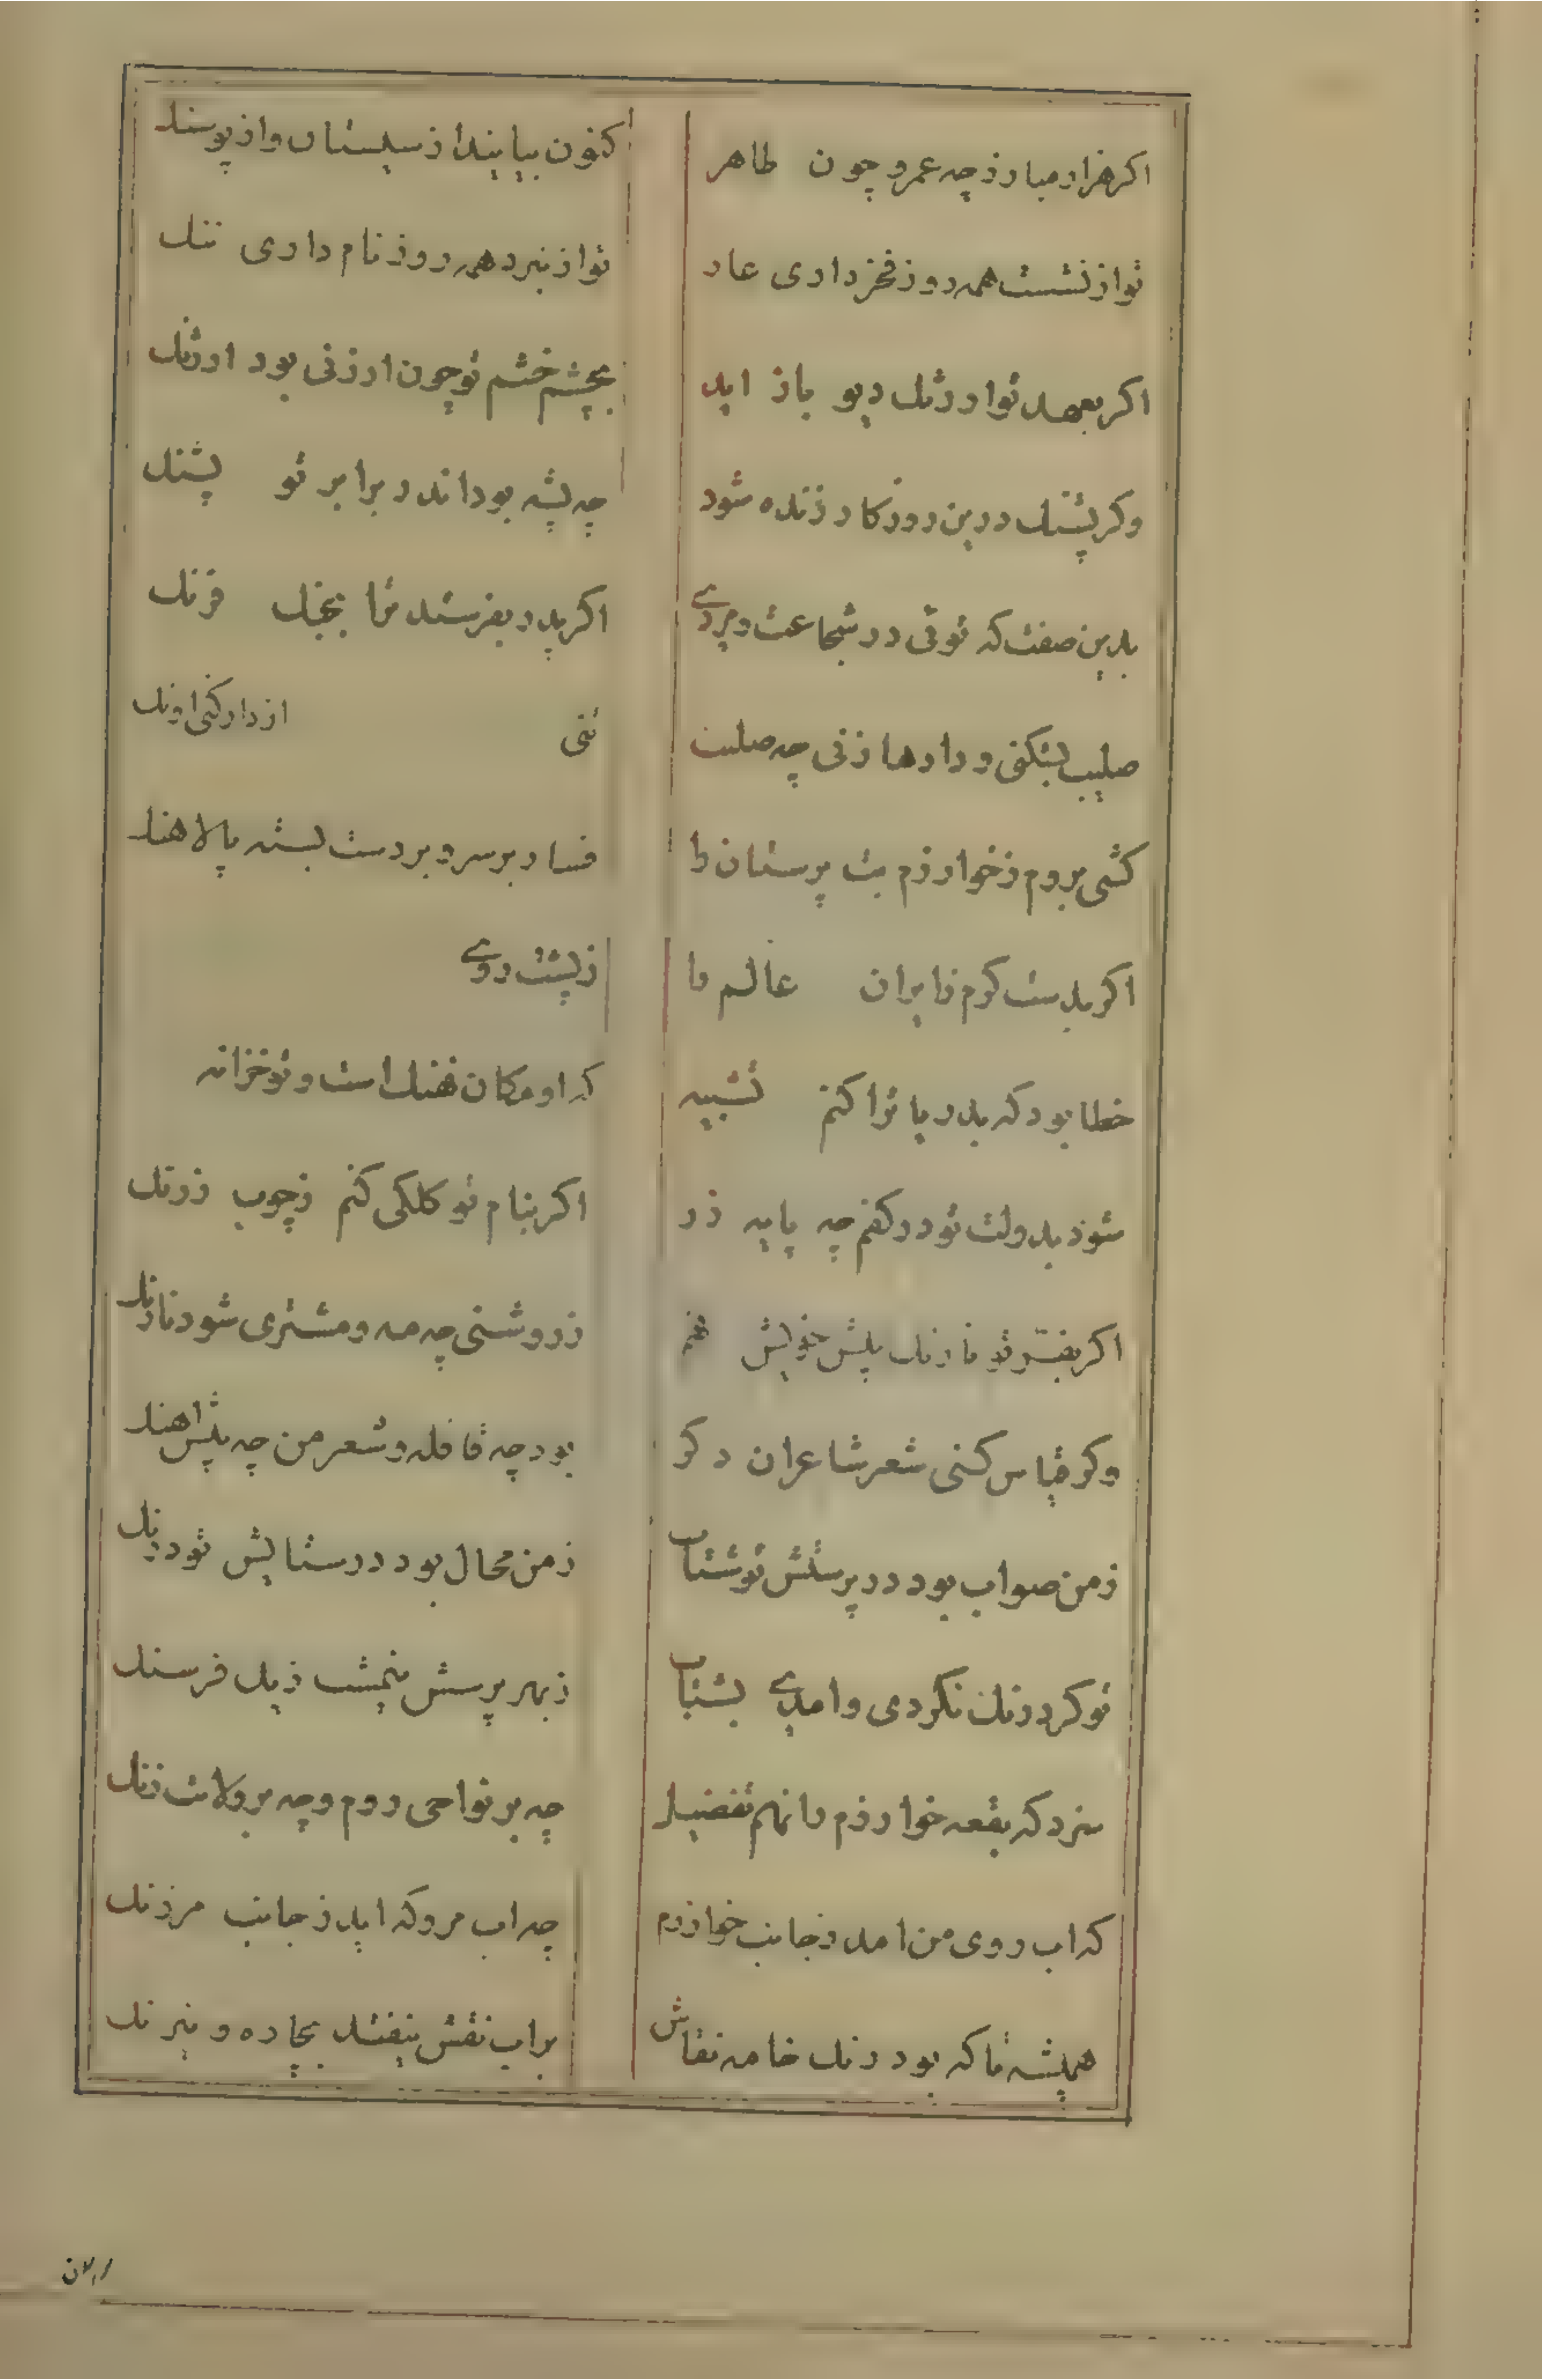 اکر هزار مبارز چه عمرو چون طاهر
کنون بیایند از سیستان و از پوسنک
تو از نشست همه روز فخر داری عار
تو از نبرد همه روز نام داری ننک
اکر بعهد تو ارژنک دیو باز اید
بچشم خشم تو چون ارزنی بود ارژنک
وکر پشنک درین روزکار زنده شود
چه پشه بود اندر برابر تو پشنک
بدین صفت که توئی در شجاعت و مردے
اکر پدر بفرستد ترا بجنک فرنک
صلیب بشکنی و دارها زنی چه صلیب
تنی از دار کنی اونک
کشی بروم ز خوارزم بت پرستان را
فسار بر سر و بر دست بسته پالاهنک
اکر بدست کرم نابران عالم را
ز پشت روے
خطا بود که بدریا ترا کنم تشبیه
که او مکان نهنک است و تو خزانه
شود بدولت تو در کفم چه پایه زر
اکر بنام تو کلکی کنم ز چوب زرنک
اکر بفر تو نارنک پیش خویش نهم
ز روشنی چه مه و مشتری شود نارنک
وکر قیاس کنی شعر شاعران دکر
بود چه قافله و شعر من چه پیش اهنک
ز من صواب بود در پرستش تو شتاب
ز من محال بود در ستایش تو درنک
تو کر درنک نکردی و امدے بشتاب
ز بهر پرسش بنمشت ذیل فرسنک
سزد که بقعه خوارزم را نهم تفضیل
چه بر نواحی روم و چه بر ولایت زنک
که اب روی من امد ز جانب خوارزم
چه اب مرو که اید ز جانب مرزنک
همیشه تا که بود رنک خامه نقاش
بر اب نقش نیفتد بچاره و نیرنک